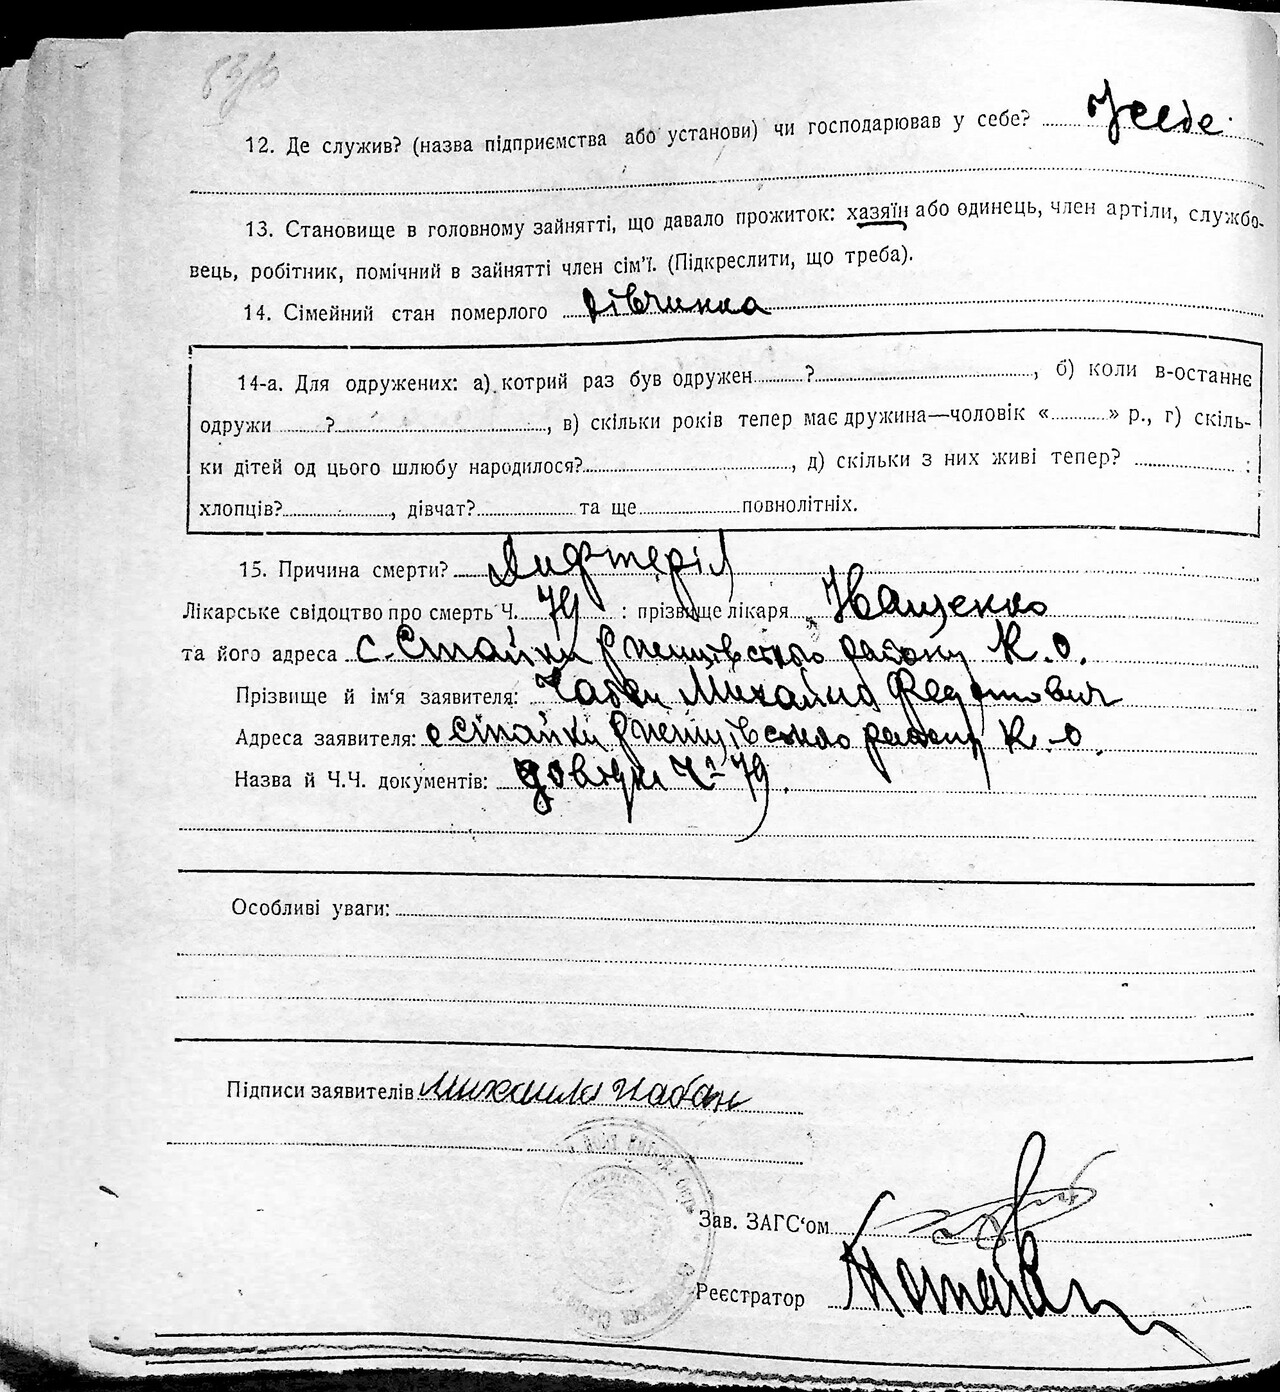 12. Де служив? (назва підприємства або установи) чи господарював у себе? У себе
13. Становище в головному зайнятті, що давало прожиток: хазяїн або одинець, член артіли, службо-
вець, робітник, помічний в зайнятті член сім'ї. (Підкреслити, що треба).
14. Сімейний стан померлого дівчинка
14-а. Для одружених: а) котрий раз був одружен ?, б) коли в-останнє
одружи ?, в) скільки років тепер має дружина—чоловік « » р., г) скіль-
ки дітей од цього шлюбу народилося?, д) скільки з них живі тепер? :
хлопців?, дівчат? та ще повнолітніх.
15. Причина смерти? Дифтерія
Лікарське свідоцтво про смерть Ч. 79 : прізвище лікаря Іващенко
та його адреса с. Стайки Ржищівського району К. О.
Прізвище й ім'я заявителя: Чабан Михайло Федотович
Адреса заявителя: с Стайки Ржищівського району К. О.
Назва й Ч.Ч. документів: довідка Ч 79.
Особливі уваги:
Підписи заявителів Михаило Чабан
Зав. ЗАГС'ом
Реєстратор